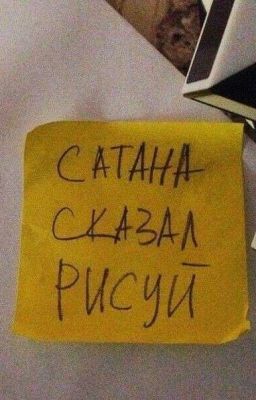 САТАНА
СКАЗАЛ
РИСУЙ